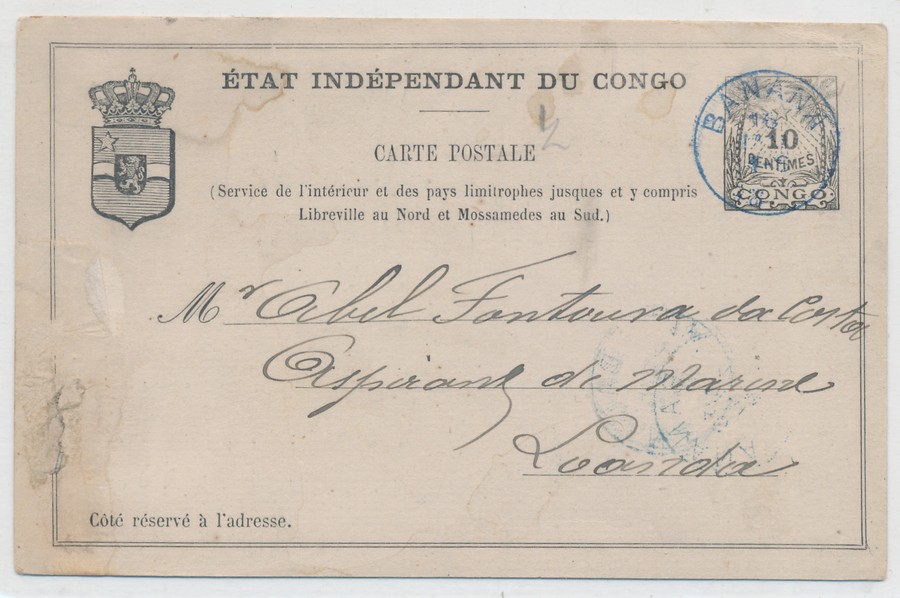 ÉTAT INDÉPENDANT DU CONGO
CARTE POSTALE
(Service de l'intérieur et des pays limitrophes jusques et y compris
Libreville au Nord et Mossamedes au Sud.)
BANANA
10
CENTIMES
CONGO
2
Mr Abel Fontoura da Costa
Aspirant de Marine
Loanda
Côté réservé à l'adresse.